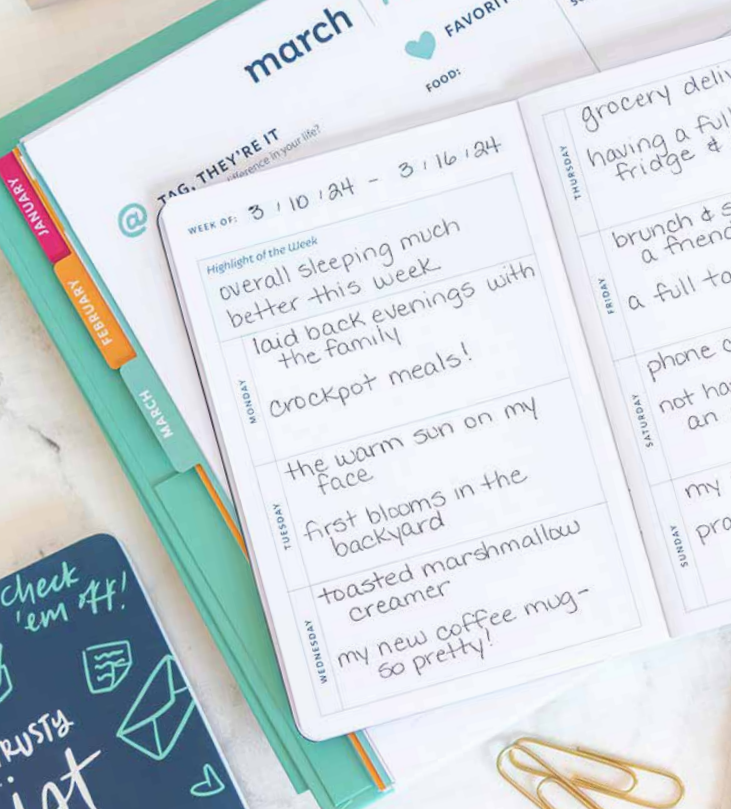 march
FAVORIT
FOOD:
TAG, THEY'RE IT
difference in your life?
@
JANUARY
FEBRUARY
MARCH
WEEK OF: 3 / 10 / 24 - 3 / 16 / 24
Highlight of the Week
overall sleeping much
better this week
MONDAY
laid back evenings with
the family
crockpot meals!
TUESDAY
the warm sun on my
face
first blooms in the
backyard
WEDNESDAY
toasted marshmallow
creamer
my new coffee mug-
so pretty!
THURSDAY
grocery deliv
having a full
fridge &
FRIDAY
brunch & s
a frienc
a full ta
SATURDAY
phone c
not ha
an
SUNDAY
my
pra
check
'em off!
RUSTY
ist